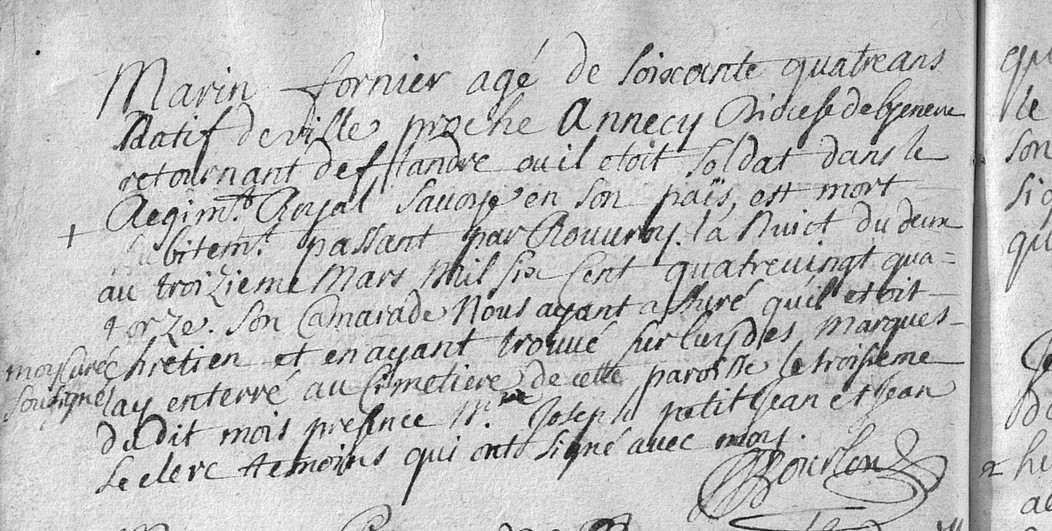 Marin fornier agé de soixante quatre ans
Natif de ville proche Annecy Diocese de Geneve
retournant de fflandre ou il etoit soldat dans le
Regimt. Royal Savoye en son païs, est mort
subitemt. passant par Rouuroy. la Nuict du deux
au troizieme Mars Mil six Cent quatrevingt qua-
torze. Son Camarade Nous ayant assuré quil etoit
chretien et en ayant trouvé sur luy des marques
moy curé
soussigné
lay enterré au Cimetiere de cette paroisse le troisieme
du dit mois presence Joseph petit Jean et Jean
Leclerc temoins qui ont signé avec moy.